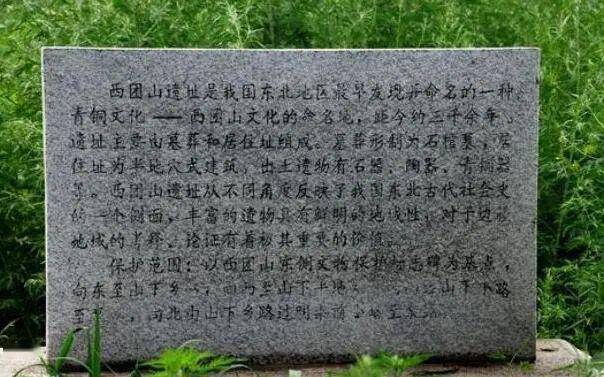 西团山遗址是我国东北地区最早发现并命名的一种
青铜文化——西团山文化的命名地,距今约三千余年。
遗址主要由墓葬和居住址组成。墓葬形制为石棺墓,居
住址为半地穴式建筑。出土遗物有石器、陶器、青铜器
等。西团山遗址从不同角度反映了我国东北古代社会史
的一个侧面,丰富的遗物具有鲜明的地域性,对于边疆
地域的考释、论证有着极其重要的价值。
保护范围:以西团山东侧文物保护标志碑为基点,
向东至山下乡 山下 山下 路
至 向北 山下乡路过